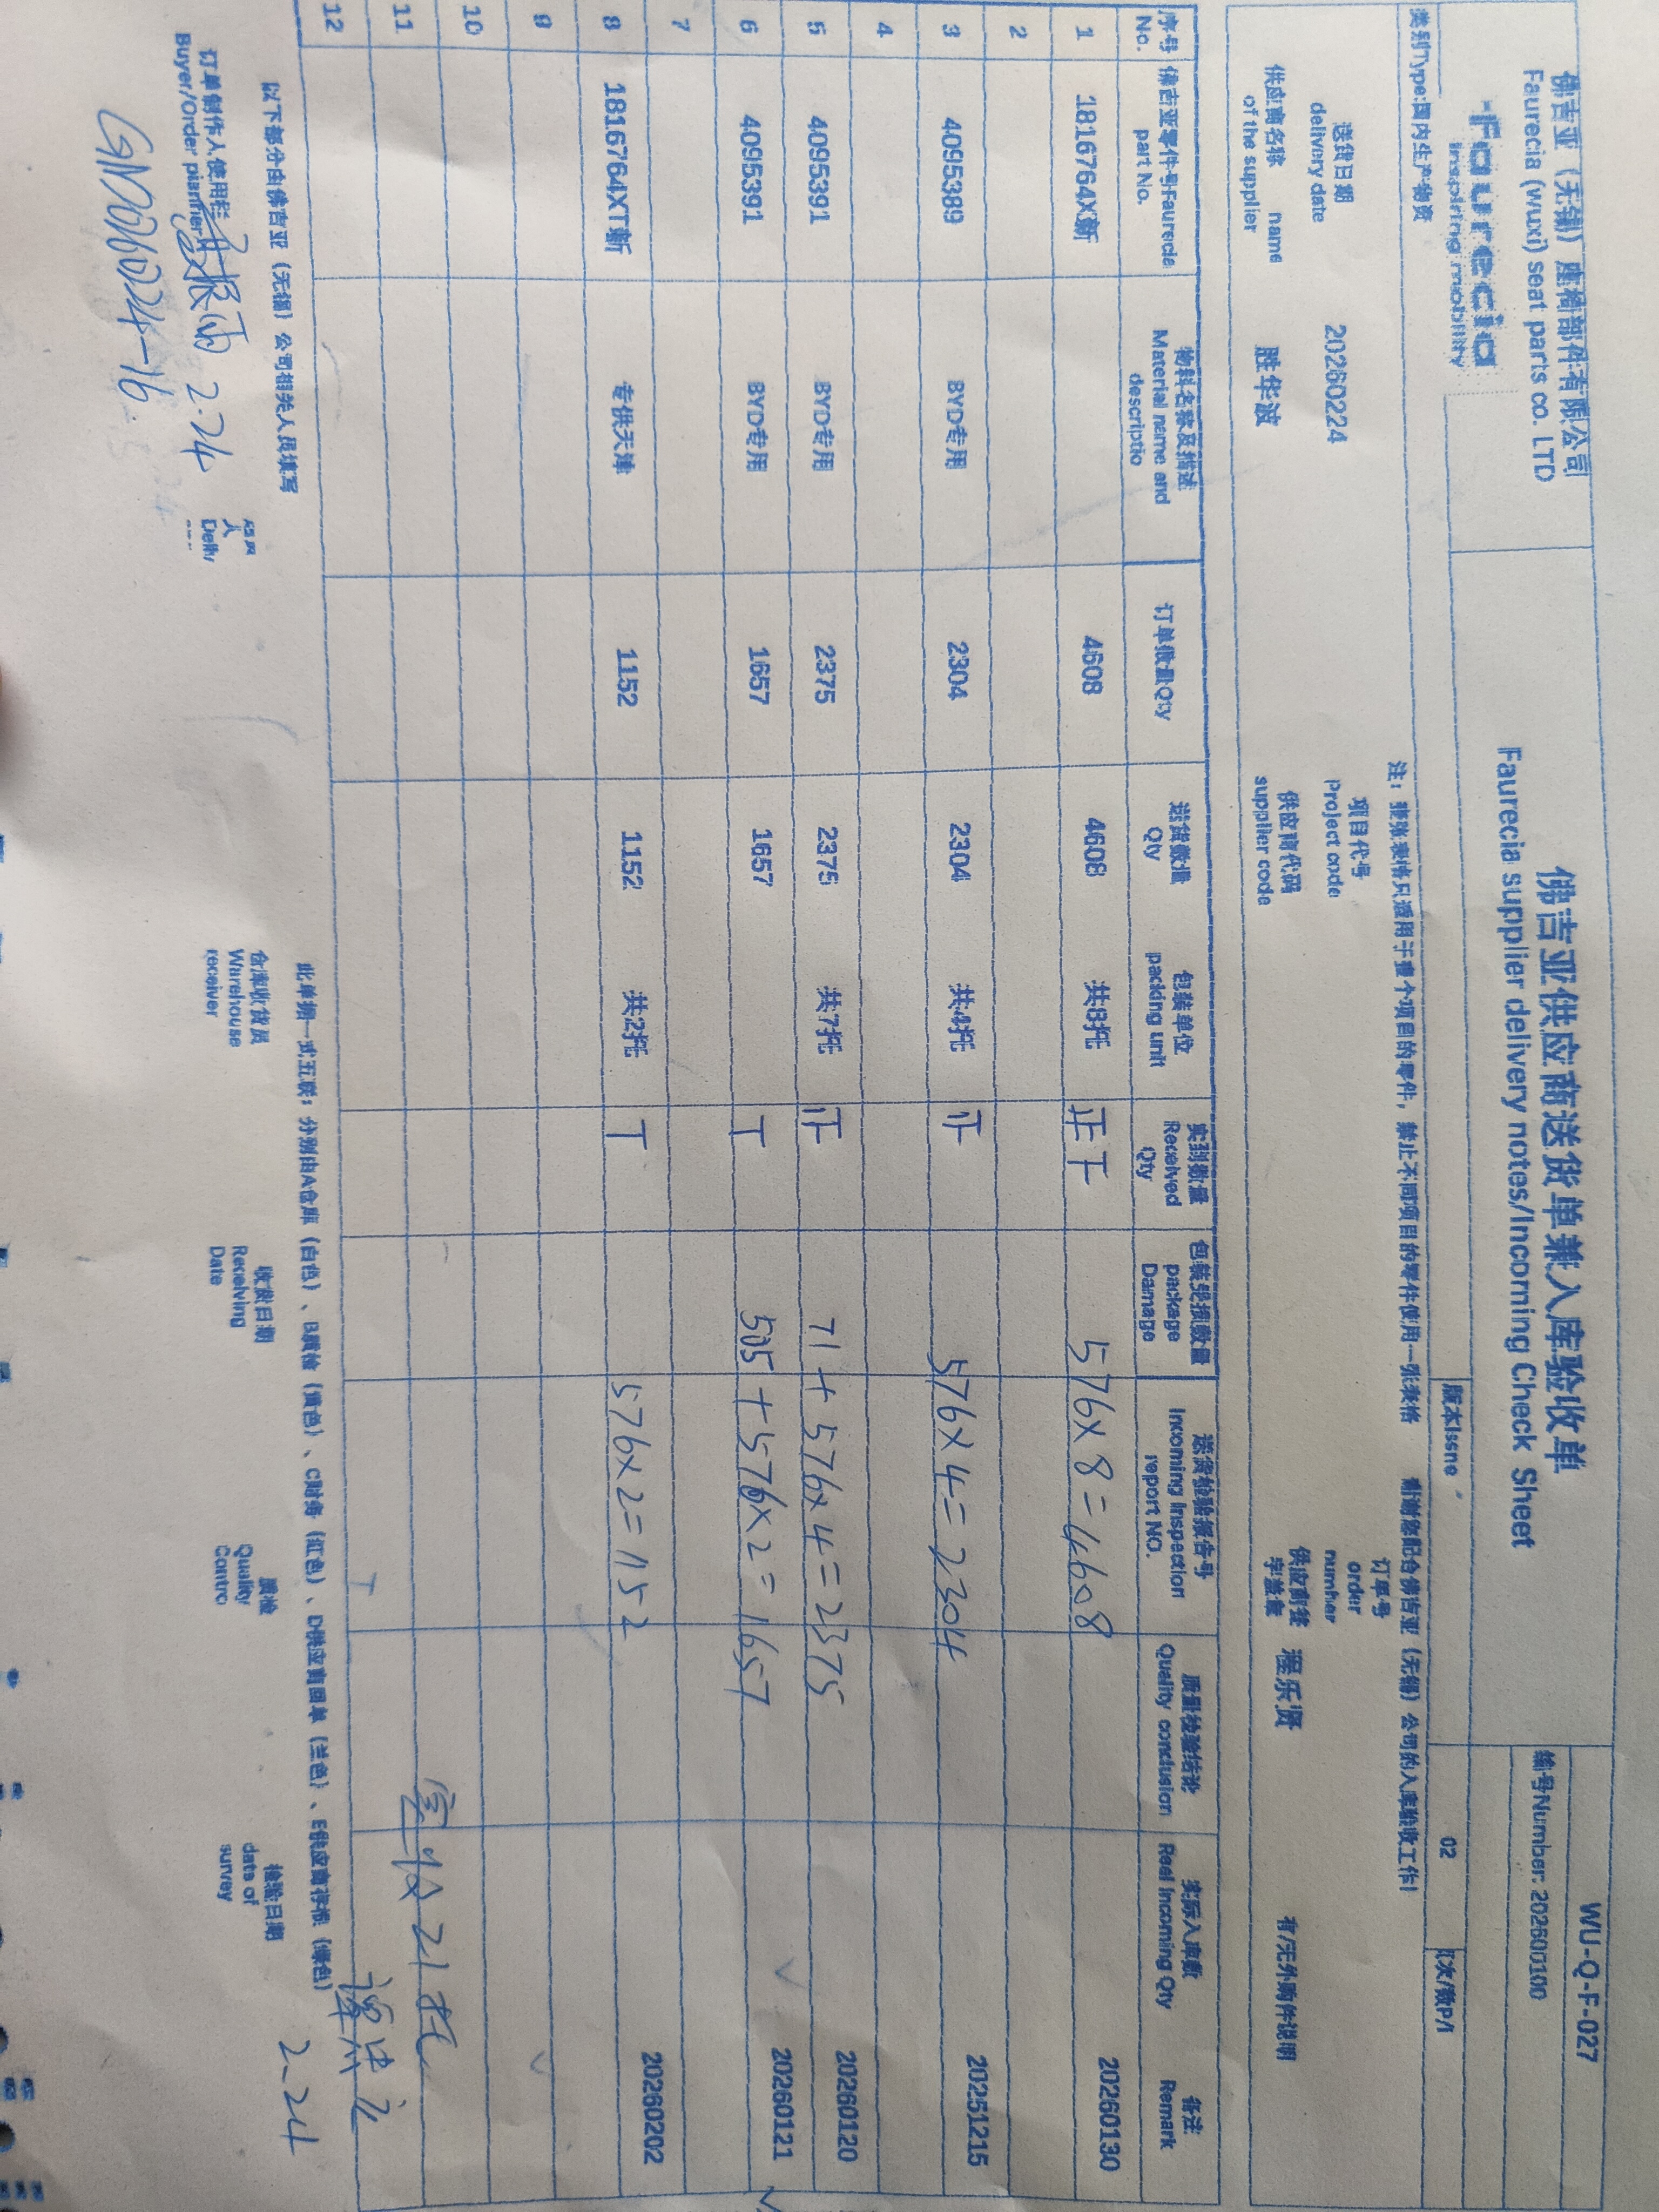 佛吉亚（无锡）座椅部件有限公司
Faurecia (wuxi) seat parts co. LTD
佛吉亚供应商送货单兼入库验收单
Faurecia supplier delivery notes/Incoming Check Sheet
WU-Q-F-027
编号Number: 202600100
faurecia
inspiring mobility
版本Issne 02 页次/数P/1
类别Type:国内生产物资
注：张张表格只适用于壹个项目的零件，禁止不同项目的零件使用一张表格 谢谢您配合佛吉亚（无锡）公司的入库验收工作!
送货日期 delivery date 20260224 项目代号 Project code 订单号 order number
供应商名称 name of the supplier 胜华波 供应商代码 supplier code 供应商签字盖章 程乐贤 有/无外购件说明
序号 No. 佛吉亚零件号Faurecia part No. 物料名称及描述 Material name and descriptio 订单数量Qty 送货数量 Qty 包装单位 packing unit 实到数量 Received Qty 包装受损数量 package Damage 送货检验报告号 Incoming Inspection report NO. 质量检验结论 Quality conclusion 实际入库数 Real Incoming Qty 备注 Remark
1 1816764X新 4608 4608 共8托 正下 576×8=4608 20260130
2
3 4095389 BYD专用 2304 2304 共4托 576×4=2304 20251215
4
5 4095391 BYD专用 2375 2375 共7托 71+576×4=2375 20260120
6 4095391 BYD专用 1657 1657 T 505+576×2=1657 20260121
7
8 1816764XT新 专供天津 1152 1152 共2托 T 576×2=1152 20260202
9
10
11 实收21托
12
以下部分由佛吉亚（无锡）公司相关人员填写 此单据一式五联：分别由A仓库（白色）、B质检（黄色）、C财务（红色）、D供应商回单（兰色）、E供应商存根（绿色）
订单制作人使用栏 Buyer/Order planner 2.24 仓库收货员 Warehouse receiver 收货日期 Receiving Date 质检 Quality Contro 检验日期 date of survey 2-24
GN20260224-16